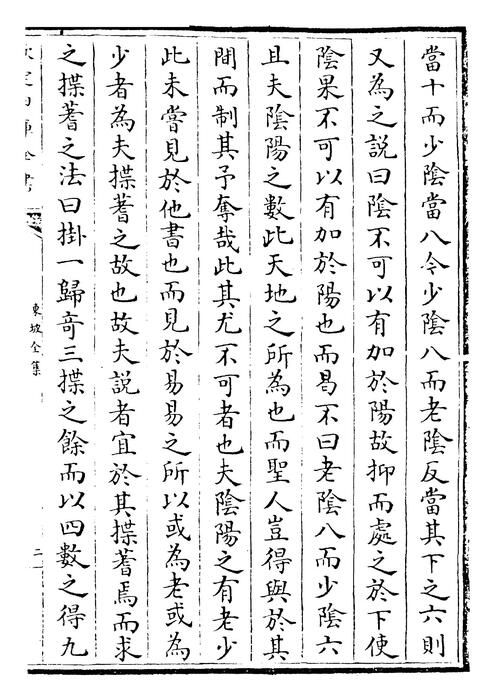 當十而少陰當八今少陰八而老陰反當其下之六則
又為之説曰陰不可以有加於陽故抑而處之於下使
陰果不可以有加於陽也而曷不曰老陰八而少陰六
且夫陰陽之數此天地之所為也而聖人豈得與於其
間而制其予奪哉此其尤不可者也夫陰陽之有老少
此未嘗見於他書也而見於易易之所以或為老或為
少者為夫揲蓍之故也故夫説者宜於其揲蓍焉而求
之揲蓍之法曰掛一歸奇三揲之餘而以四數之得九
欽定四庫全書
東坡全集
二